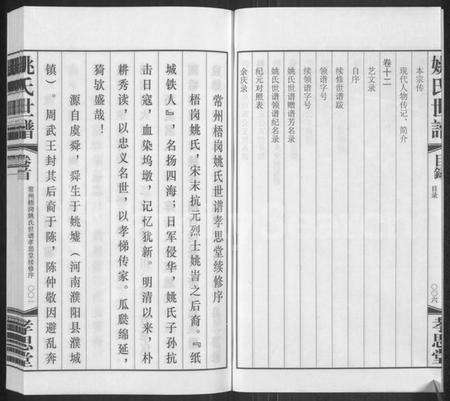 姚氏世譜
目錄
目录
〇〇六
孝思堂
本宗传
现代人物传记、简介
卷十二
艺文录
自序
续修世谱跋
领谱字号
续领谱字号
姚氏世谱赠谱芳名录
姚氏世谱领谱纪名录
纪元对照表
余庆录
常州梧岗姚氏世谱孝思堂续修序
梧岗姚氏，宋末抗元烈士姚訔之后裔。『纸
城铁人』，名扬四海；日军侵华，姚氏子孙抗
击日寇，血染坞墩，记忆犹新。明清以来，朴
耕秀读，以忠义名世，以孝悌传家。瓜瓞绵延，
猗欤盛哉！
源自虞舜，舜生于姚墟（河南濮阳县濮城
镇）。周武王封其后裔于陈，陈仲敬因避乱奔
姚氏世譜
卷首
常州梧岗姚氏世谱孝思堂续修序
〇〇一
孝思堂